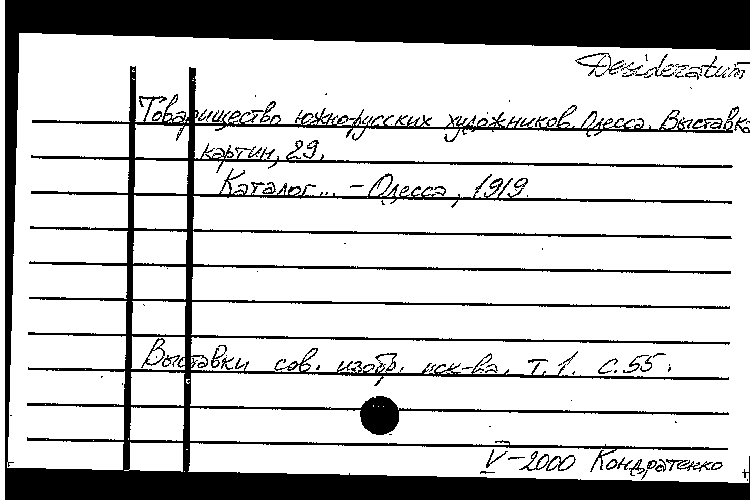 Desideratum
Товарищество южнорусских художников. Одесса. Выставка
картин, 29.
Каталог... – Одесса, 1919.
Выставки сов. изобр. иск-ва. т. 1. с. 55.
V – 2000 Кондратенко